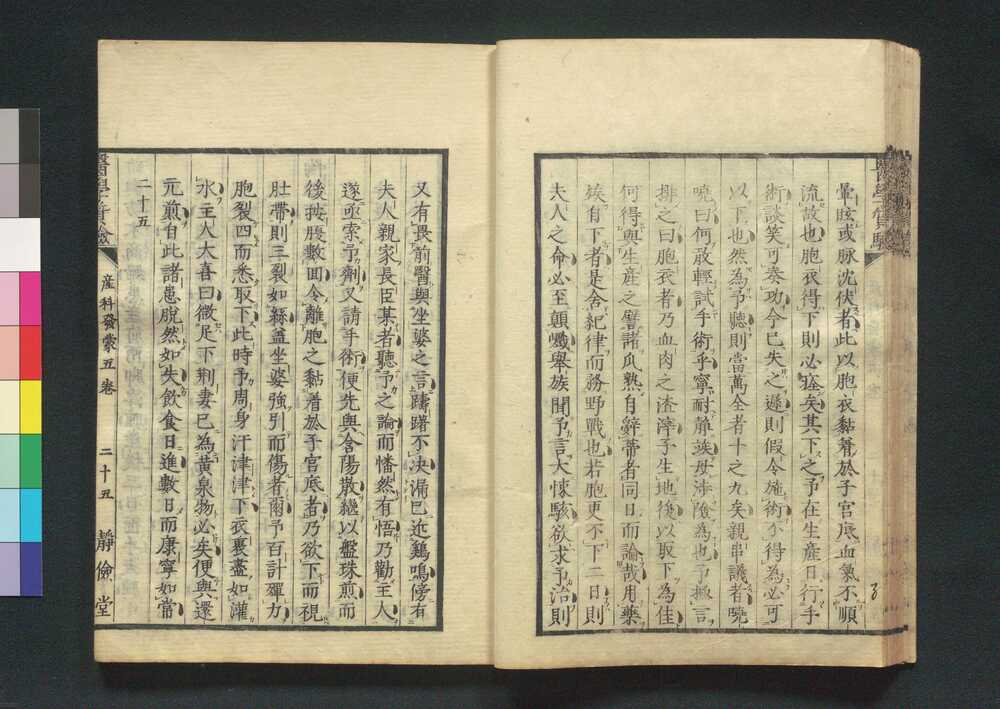 暈眩或脉沈伏者此以胞衣黏著於子宮底血氣不順
流故也胞衣得下則必痊矣其下之予在生産日行手
術談笑可奏功今已失之遲則假令施術不得為必可
以下也然為予聽則當萬全者十之九矣親串議者嘵
嘵曰何敢輕試手術乎寧耐静族母渉險為也予撫言
排之曰胞衣者乃血肉之渣滓子生地後以取下為佳
何得與生産之譬諸瓜熟自辭蔕者同日而論哉用藥
族有下者是舍紀律而務野戰也若胞更不下二日則
夫人之命必至顛蹶舉族聞予言大悚駭欲求予治則
又有畏前醫與坐婆之言躊躇不決漏已近鷄鳴傍有
夫人親家長臣某者聽予之論而幡然有悟乃勸主人
遂亟索予劑又請手術便先與含陽散繼以盤珠煎而
後按腹數回令離胞之黏著於子宮底者乃欲下而視
肚帶則三裂如繇蓋坐婆強引而傷者爾予百計殫力
胞裂四而悉取下此時予周身汗津津下衣裏盡如灌
水主人大喜曰微足下荆妻已為黄泉物必矣便與還
元煎自此諸患脱然如失飲食日進數日而康寧如常
二十五
産科發蒙五卷
二十五
静儉堂